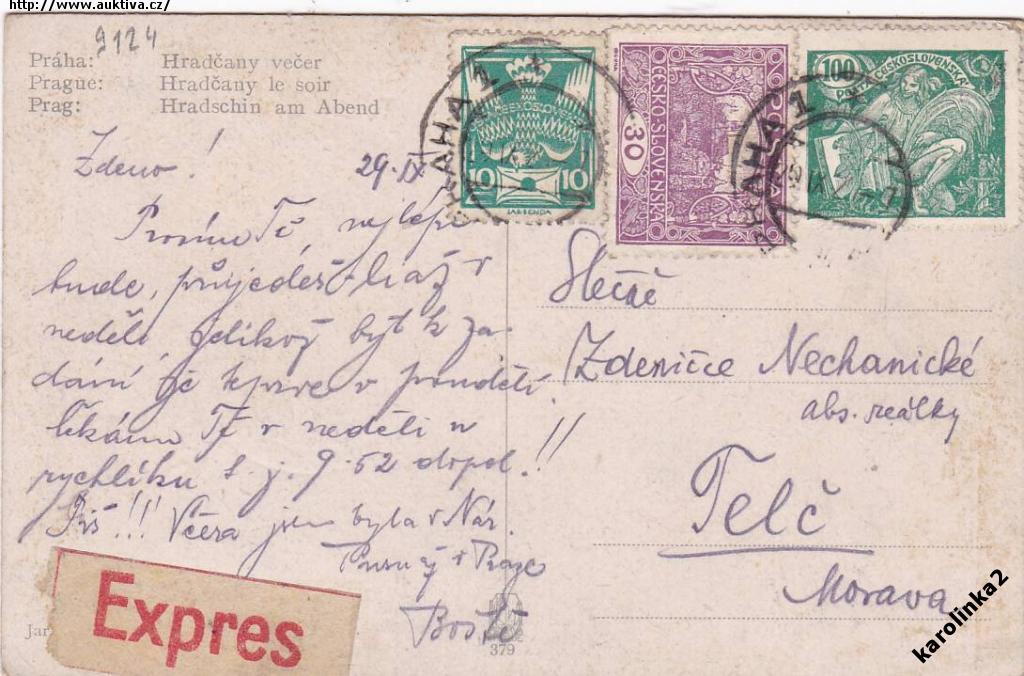 http://www.auktiva.cz/
9124
Práha: Hradčany večer
Prague: Hradčany le soir
Prag: Hradschin am Abend
Zdeno!
29.IX
Prosím Tě, nejlépe
bude, přijedeš-li až v
neděli, jelikož byt k za-
dání je teprve v pondělí.
Čekám Tě v neděli u
rychlíku t.j. 9.52 dopol.!!
Piš!!! Včera jsem byla v Nár.
Expres
Jar
379
PRAHA 1
ČESKOSLOV
10 10
BENDA
PRAHA 1
30
POŠTA
ČESKO-SLOVENSKÁ
100
ČESKOSLOVENSKÁ
Slečně
Zdeničce Nechanické
abs. reálky
Telč
Morava
karolinka2